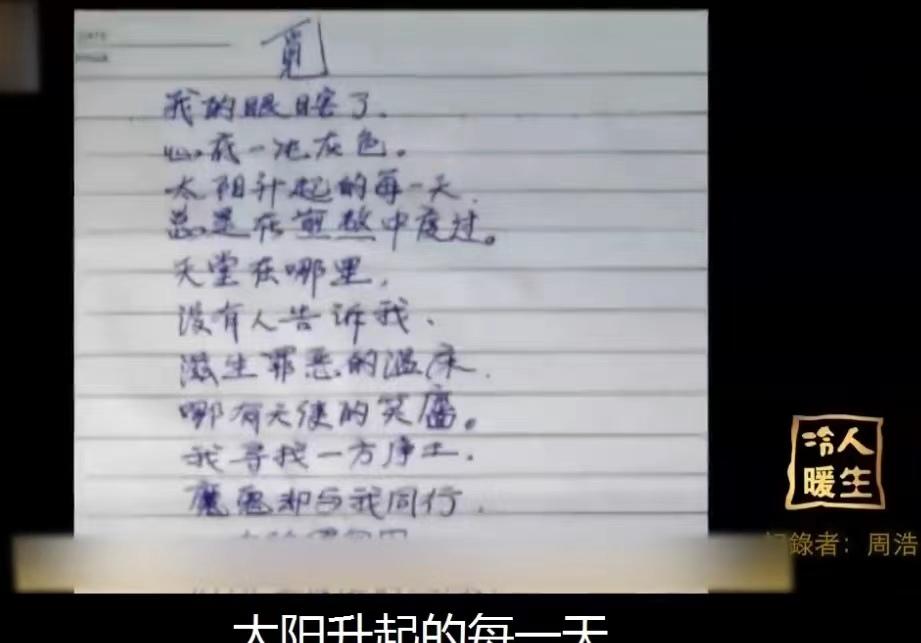 觅
我的眼瞎了.
心底一片灰色。
太阳升起的每一天.
总是在煎熬中度过。
天堂在哪里,
没有人告诉我.
滋生罪恶的温床.
哪有天使的笑靥。
我寻找一方净土.
魔鬼却与我同行.
冷人
暖生
錄者：周浩
太阳升起的每一天